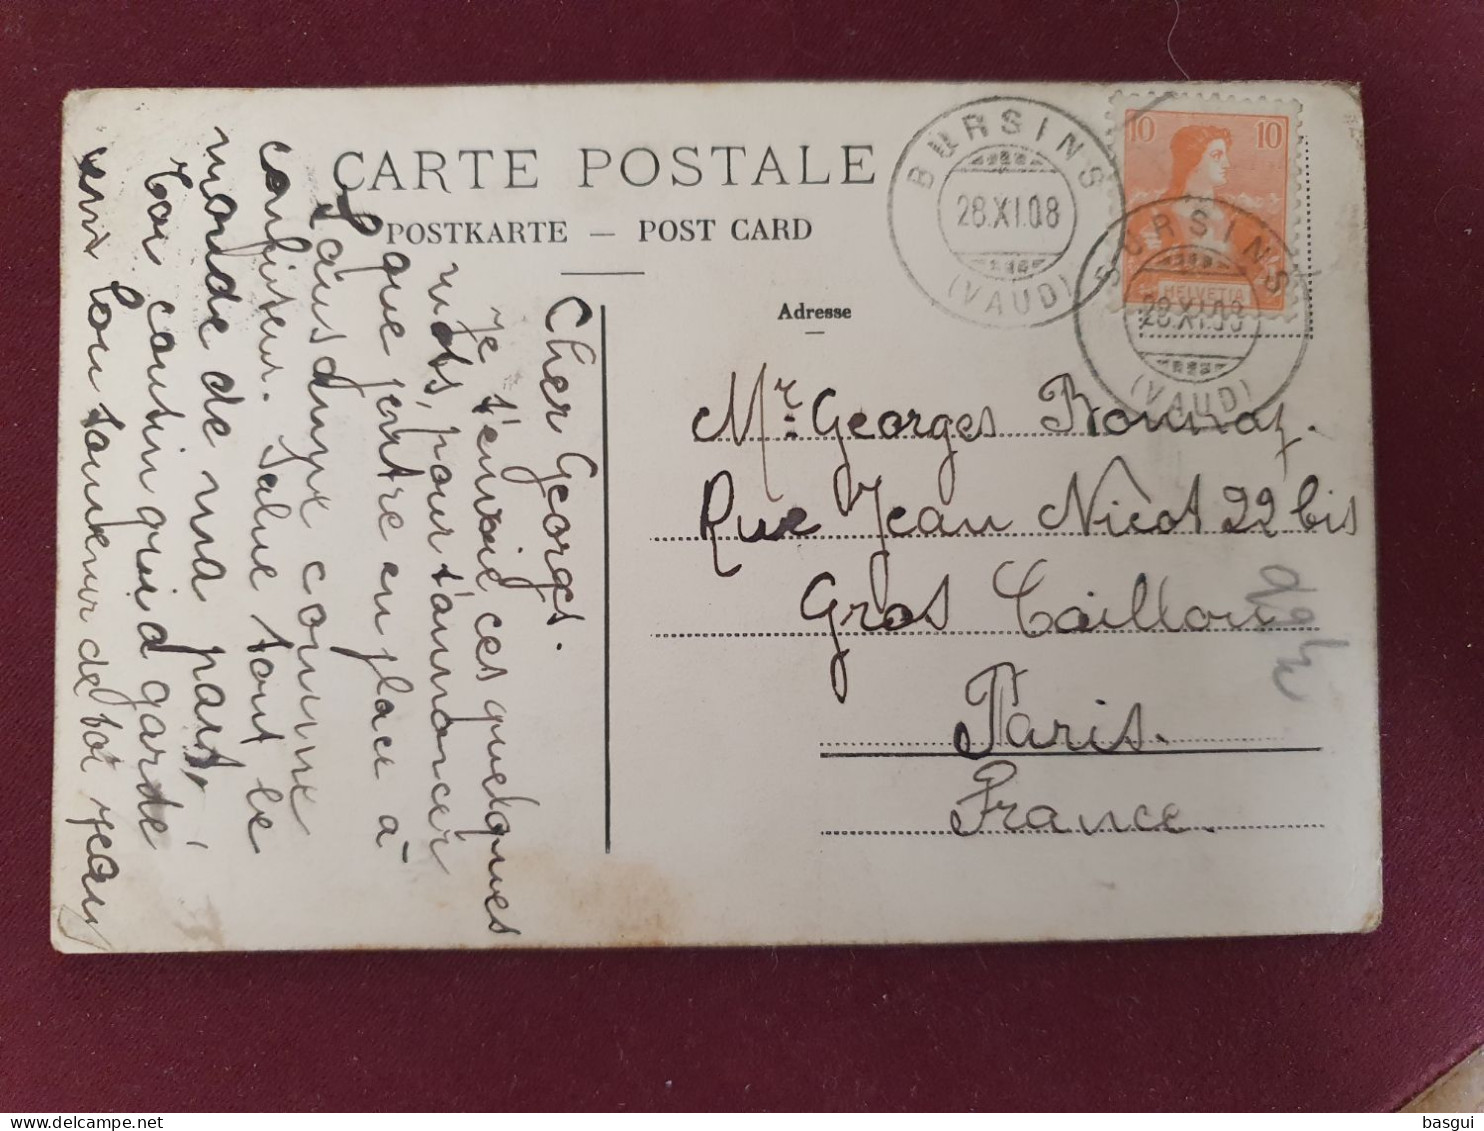 CARTE POSTALE
POSTKARTE — POST CARD
Adresse
BURSINS
28.XI.08
(VAUD)
10 10
HELVETIA
BURSINS
28.XI.08
(VAUD)
Mr. Georges
Rue Jean Nicot 22 bis
Gros Caillou
Paris.
France.
Cher Georges.
Je t'envoie ces quelques
mots, pour t'annoncer
que j'entre en place à
Lausanne comme
confiseur. Salue tout le
monde de ma part,
Toi cousin qui garde
bon souvenir de toi Jean
basgui